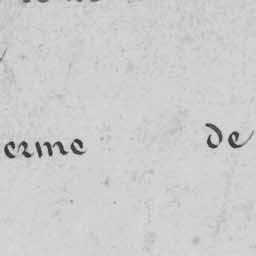 erme de